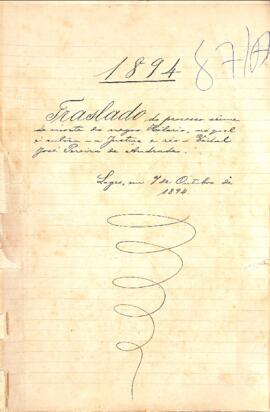 1894
87/0
Traslado do processo crime
da morte do negro Hilario, no qual
é autora — a Justiça e réo — Vidal
José Pereira de Andrade.
Lages, em 7 de Outubro de
1894